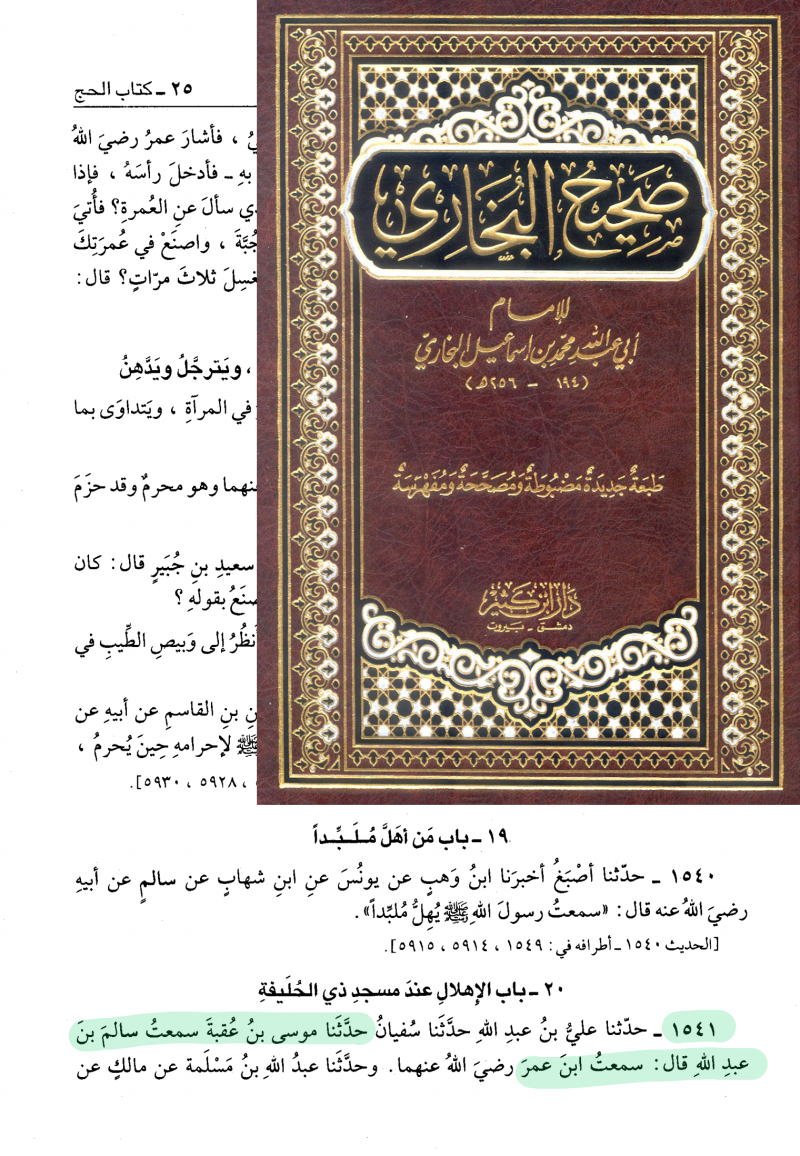 ٢٥ ـ كتاب الحج
، فأشارَ عمرُ رضيَ اللهُ
بهِ ـ فأدخلَ رأسَهُ ، فإذا
سألَ عنِ العُمرةِ؟ فأُتيَ
، واصنَعْ في عُمرَتِكَ
ثلاثَ مرّاتٍ؟ قال :
، ويَترجَّلُ ويَدَّهِنُ
في المرآةِ ، ويَتداوَى بما
وهو محرمٌ وقد حزَمَ
سعيدِ بنِ جُبَيرٍ قال : كان
بقولهِ ؟
إلى وَبيصِ الطِّيبِ في
بنِ القاسمِ عن أبيهِ عن
ﷺ لإحرامهِ حِينَ يُحرمُ ،
، ٥٩٢٨ ، ٥٩٣٠].
صَحِيحُ البُخَارِي
للإمام
أبي عبد الله محمد بن اسماعيل البخاريّ
(١٩٤ - ٢٥٦ هـ)
طَبعَةٌ جَديدَةٌ مَضْبُوطَةٌ وَمُصَحَّحَةٌ وَمُفَهْرَسَةٌ
دَارُ ابْن كَثير
دمشق - بيروت
١٩ ـ باب مَن أهَلَّ مُلَبِّداً
١٥٤٠ ـ حدّثنا أصْبَغُ أخبرَنا ابنُ وَهبٍ عن يونُسَ عنِ ابنِ شهابٍ عن سالمٍ عن أبيهِ
رضيَ اللهُ عنه قال : «سمعتُ رسولَ اللهِ ﷺ يُهِلُّ مُلبِّداً» .
[الحديث ١٥٤٠ ـ أطرافه في : ١٥٤٩ ، ٥٩١٤ ، ٥٩١٥].
٢٠ ـ باب الإهلالِ عندَ مسجدِ ذي الحُلَيفةِ
١٥٤١ ـ حدّثنا عليُّ بنُ عبدِ اللهِ حدَّثَنا سُفيانُ حدَّثَنا موسى بنُ عُقبةَ سمعتُ سالمَ بنَ
عبدِ اللهِ قال : سمعتُ ابنَ عمرَ رضيَ اللهُ عنهما . وحدَّثَنا عبدُ اللهِ بنُ مَسْلَمة عن مالكٍ عن